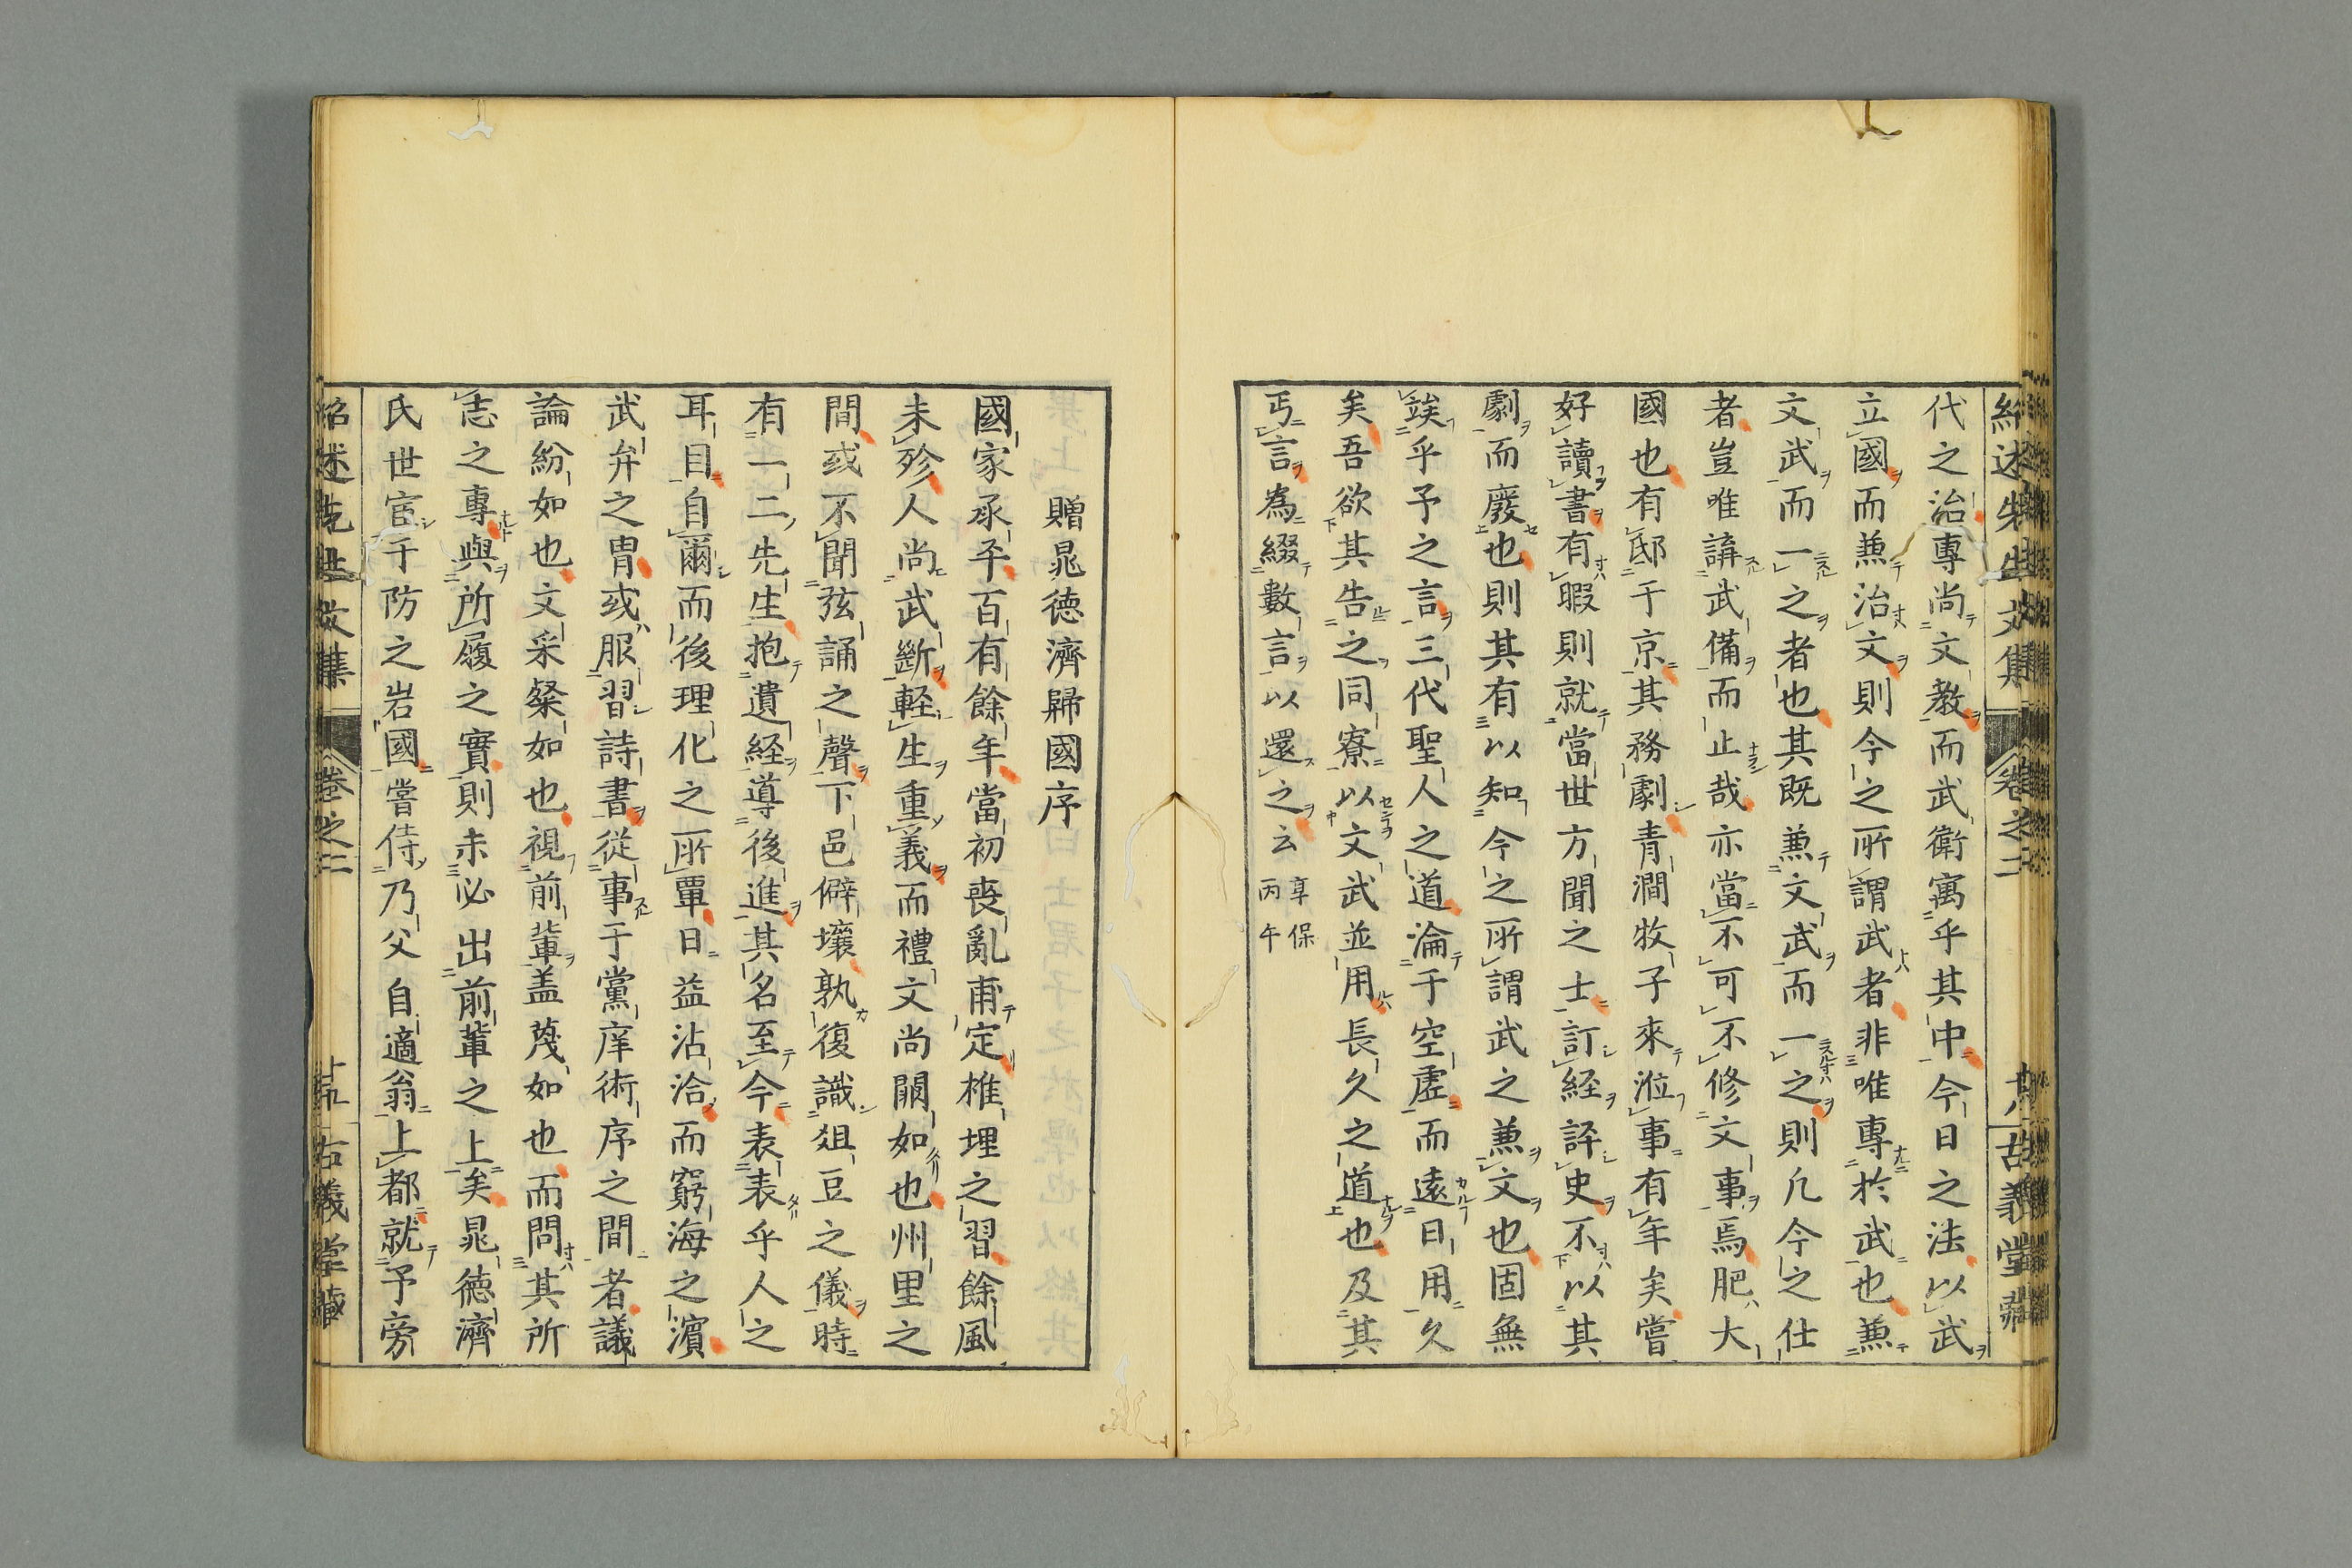 代之治專尚文教而武衛寓乎其中今日之法以武
立國而兼治文則今之所謂武者非唯專於武也兼
文武而一之者也其既兼文武而一之則凡今之仕
者豈唯講武備而止哉亦當不可不修文事焉肥大
國也有邸于京其務劇青澗牧子來涖事有年矣嘗
好讀書有暇則就當世方聞之士訂経評史不以其
劇而廢也則其有以知今之所謂武之兼文也固無
竢乎予之言三代聖人之道淪于空虛而遠日用久
矣吾欲其告之同寮以文武並用長久之道也及其
丐言為綴數言以還之云 享保丙午
贈晁德濟歸國序
國家承平百有餘年當初喪亂甫定椎埋之習餘風
未殄人尚武斷軽生重義而禮文尚闕如也州里之
間或不聞弦誦之聲下邑僻壤孰復識俎豆之儀時
有一二先生抱遺経導後進其名至今表表乎人之
耳目自爾而後理化之所覃日益沾洽而窮海之濱
武弁之冑或服習詩書從事于黨庠術序之間者議
論紛如也文采粲如也視前輩盖蔑如也而問其所
志之專與所履之實則未必出前輩之上矣晁德濟
氏世宦于防之岩國嘗侍乃父自適翁上都就予旁
紹述先生文集 卷之二 古義堂藏